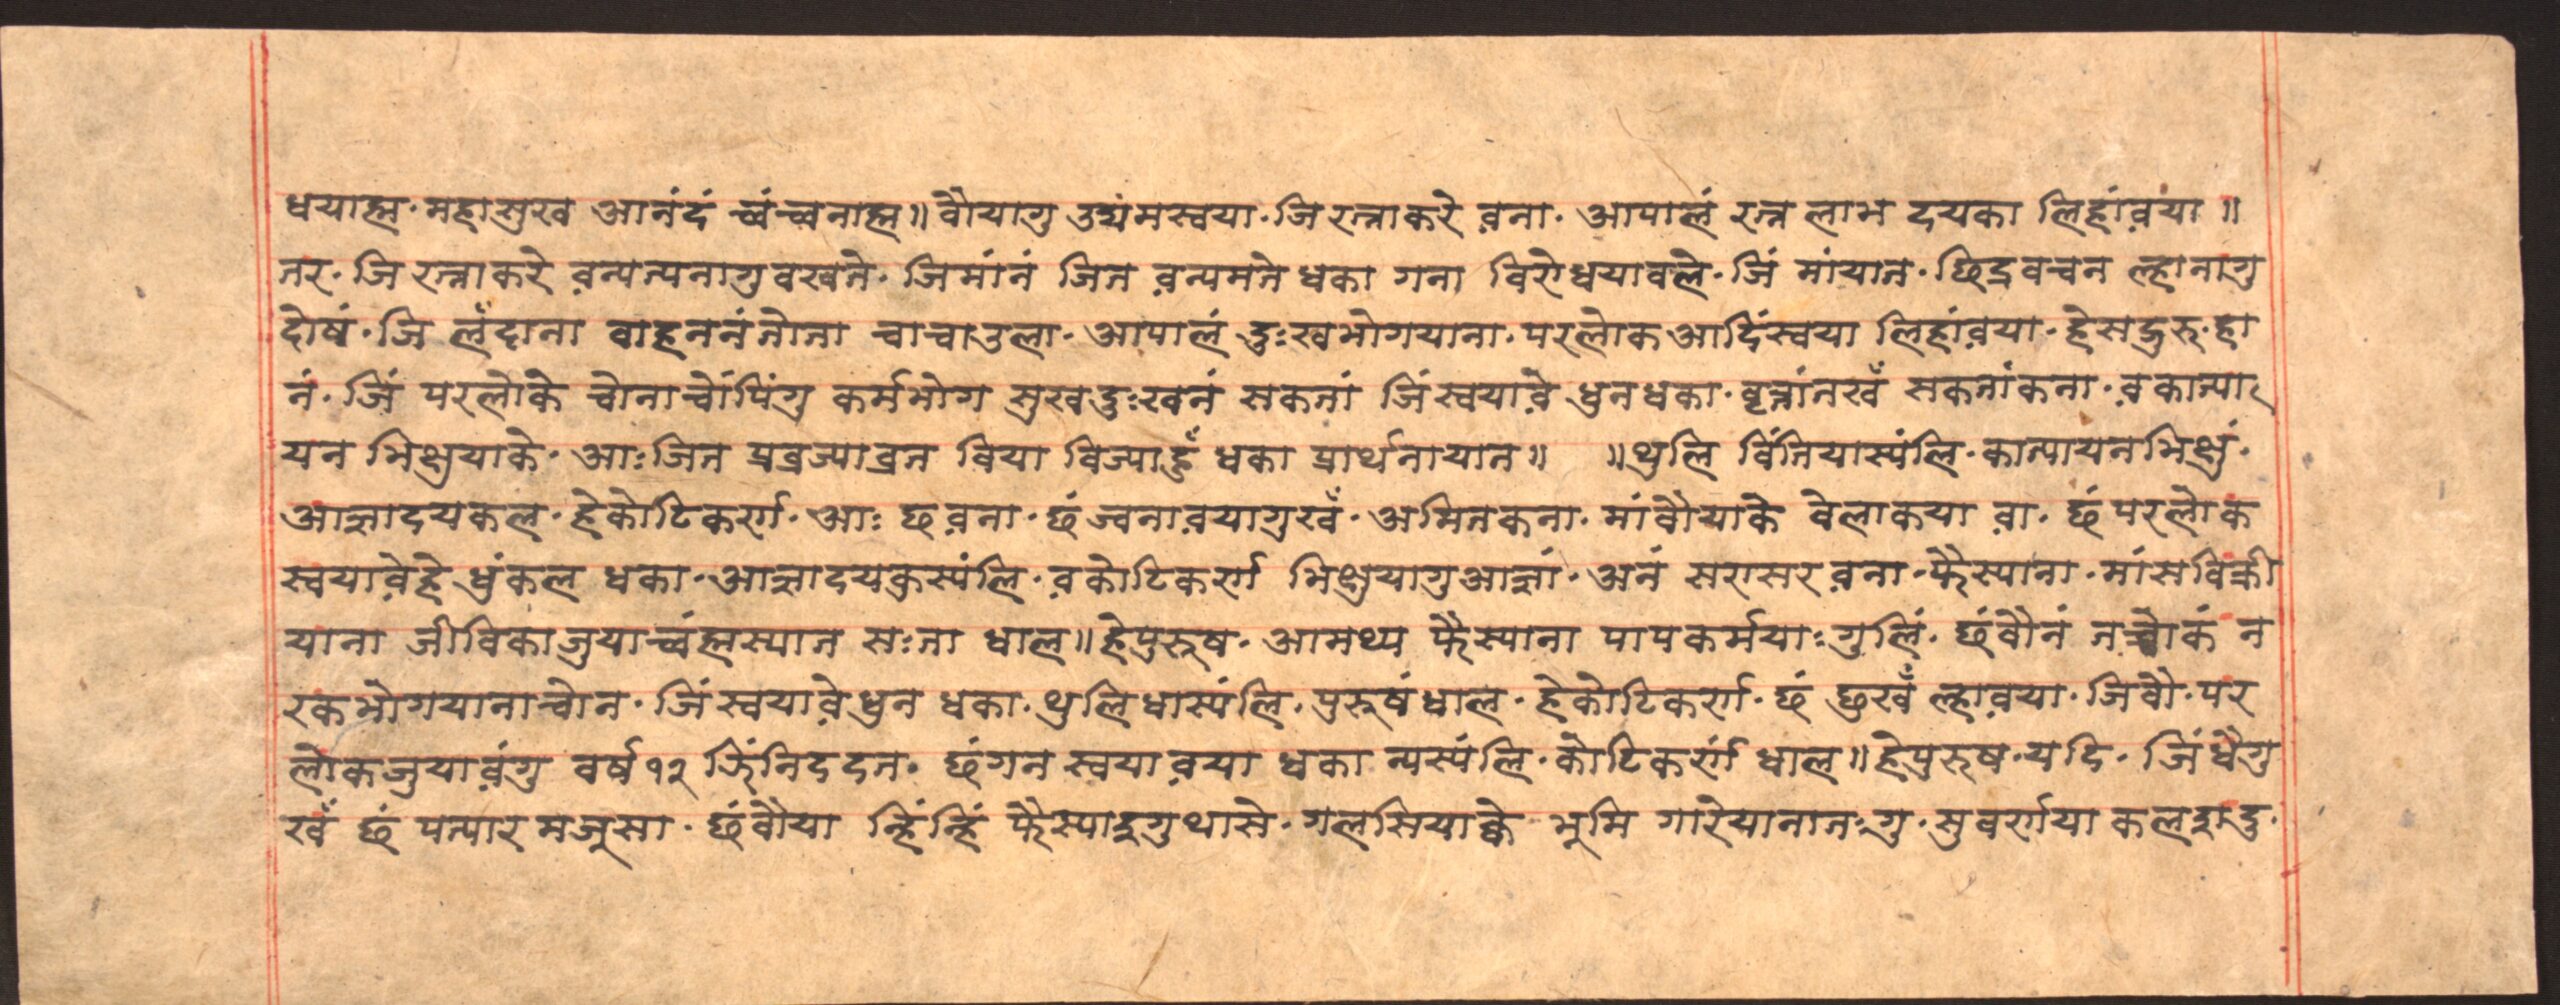 धयाह्म॰महासुख आनंदं च्वंच्वनाह्म॥बौयागु उद्यंमस्वया॰जि रत्नाकरे व़ना॰ आपालं रत्न लाभ दयका लिहांव़या॥
तर॰जि रत्नाकरे व़न्यत्यनागु वखते॰जिमांनं जित व़न्यमते धका गना विरोधयावले॰जिं मांयात॰छिद्रवचन ल्हानागु
दोषं॰जि लँदाना वाहननंतोता चाचाउला॰आपालं दुःखभोगयाना॰परलोकआदिंस्वया लिहांव़या॰हेसद्गुरु॰हा
नं॰जिं परलोके चोनाचोंपिंगु कर्मभोग सुखदुःखनं सकतां जिंस्वयाव़े धुनधका॰वृत्तांतखँ सकतांकना॰व़कात्या
यन भिक्षुयाके॰आःजित प्रव्रज्याव्रत विया विज्याहुँ धका प्रार्थनायात॥ ॥थुलि विंतियास्यंलि॰कात्यायनभिक्षुं॰
आज्ञादयकल॰हेकोटिकर्ण॰आः छव़ना॰छं ज्वनाव़यागुखँ॰अमितकना॰मांबौयाके वेलाकया व़ा॰छं परलोक
स्वयाव़ेहे धुंकल धका॰आज्ञादयकुस्यंलि॰व़कोटिकर्ण भिक्षुयागुआज्ञां॰अनं सरासर व़ना॰फैस्याना॰मांसविक्री
याना जीविकाजुयाच्वंह्मस्यात सःता धाल॥हेपुरुष॰आमथ्य फैस्याना पापकर्मयाःगुलिं॰छंबौनं नच्वोकं न
रकभोगयानाचोन॰जिंस्वयाव़ेधुन धका॰थुलिधास्यंलि॰पुरुषंधाल॰हेकोटिकर्ण॰छं छुखँ ल्हाव़या॰जिबौ॰पर
लोकजुयाव़ंगु वर्ष१२ झिंनिददत॰छंगन स्वयाव़या धका न्यस्यंलि॰कोटिकर्णं धाल॥हेपुरुष॰यदि॰जिंधैगु
खँ छं पत्यारमजूसा॰छंबौया न्हिंन्हिं फैस्याइगुथासे॰गलसियाक्वे भूमि गारेयानातःगु॰सुवर्णया कलशदु॰